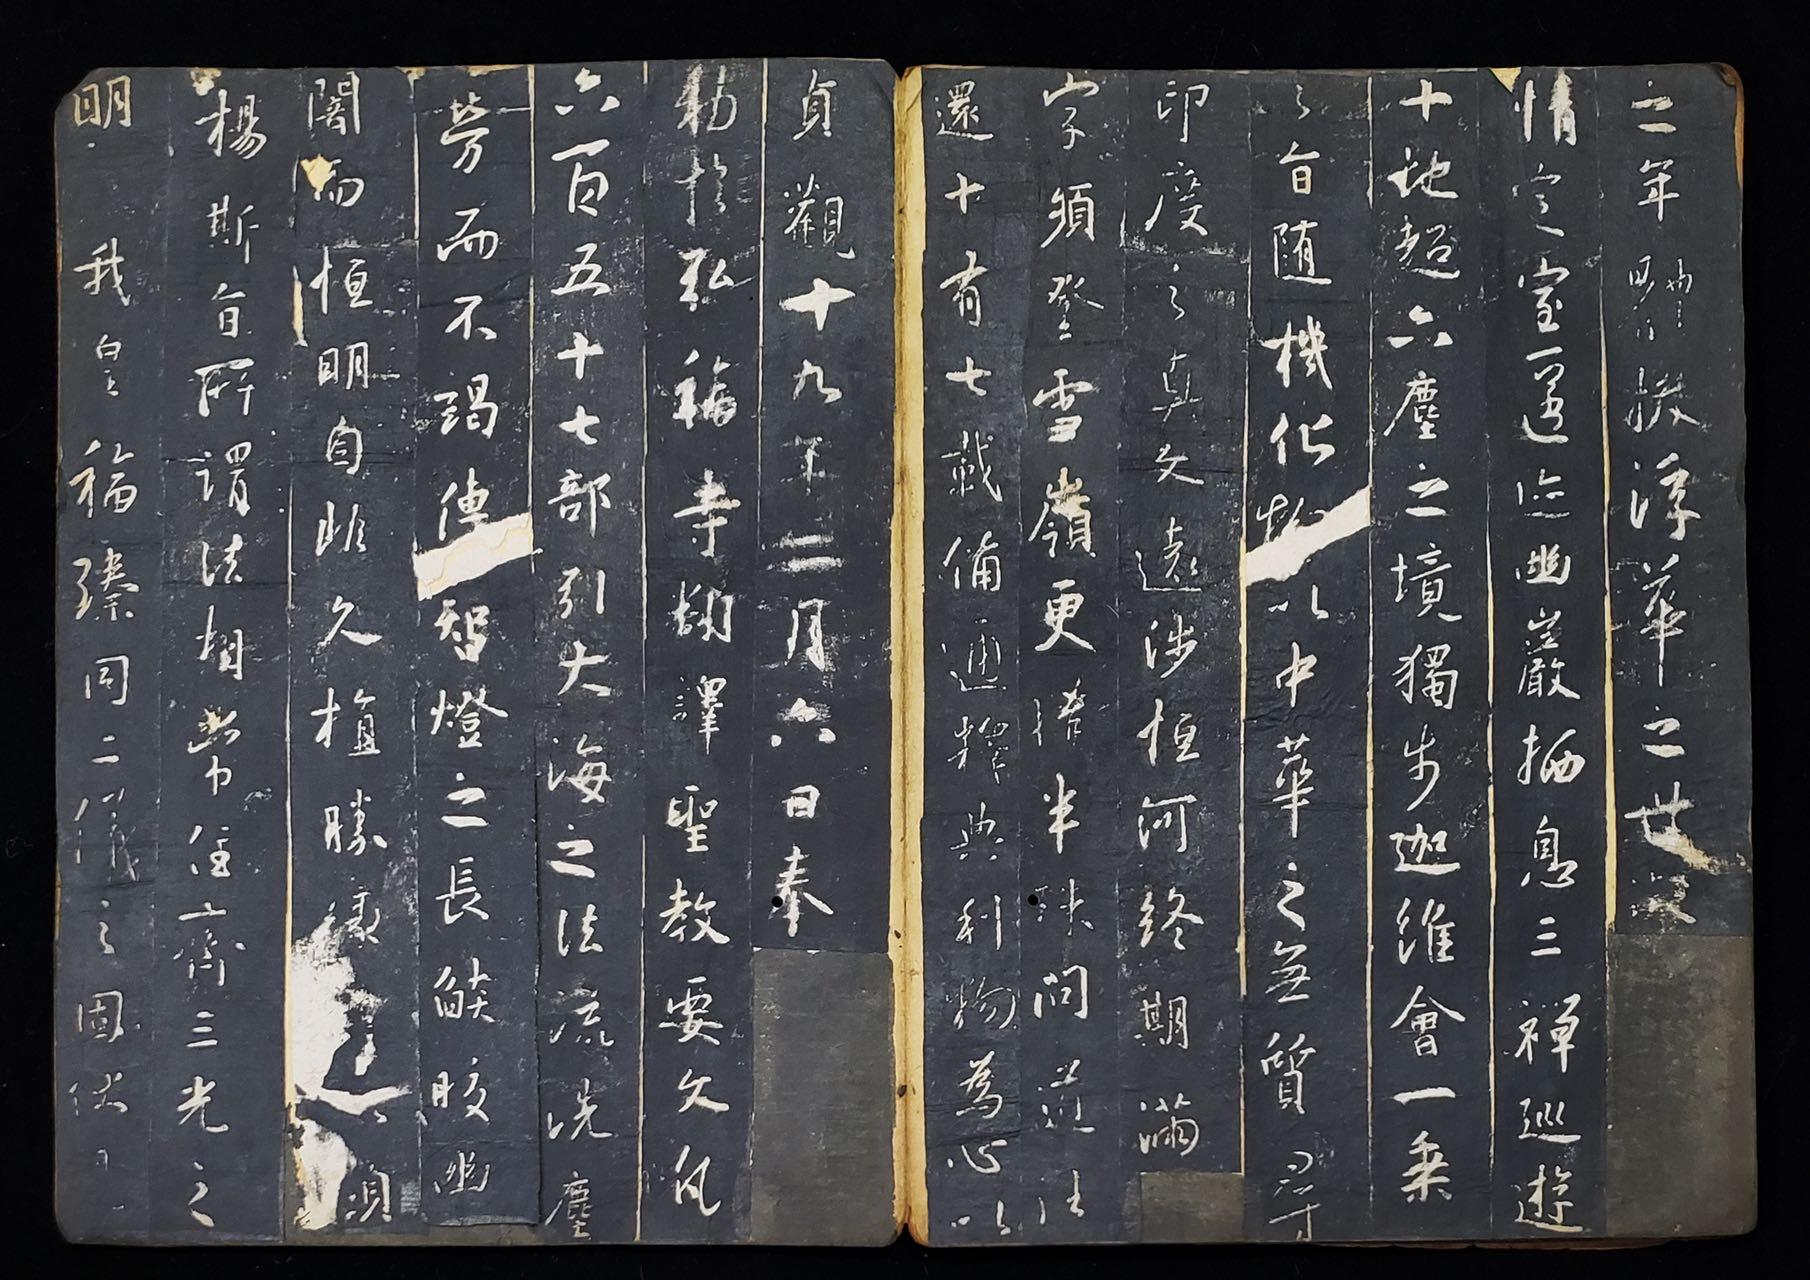 之年體拔浮華之世凝
情定室匿迹幽巖栖息三禪巡遊
十地超六塵之境獨步迦維會一乘
之旨隨機化物以中華之無質尋
印度之真文遠涉恒河終期滿
字頻登雪嶺更獲半珠問道往
還十有七載備通釋典利物為心以
貞觀十九年二月六日奉
勅於弘福寺翻譯聖教要文凡
六百五十七部引大海之法流洗塵
勞而不竭傳智燈之長燄皎幽
闇而恒明自非久植勝緣以顯
楊斯旨所謂法相常住齊三光之
明我皇福臻同二儀之固伏見